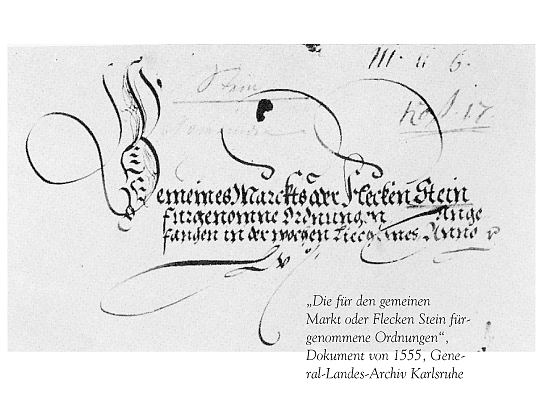 III. ii 6.
Stein
Gemeines Marckts der Flecken Stein
furgenomne Ordnungen Ange
fangen in der wochen Anno
Lv
„Die für den gemeinen
Markt oder Flecken Stein für-
genommene Ordnungen“,
Dokument von 1555, Gene-
ral-Landes-Archiv Karlsruhe